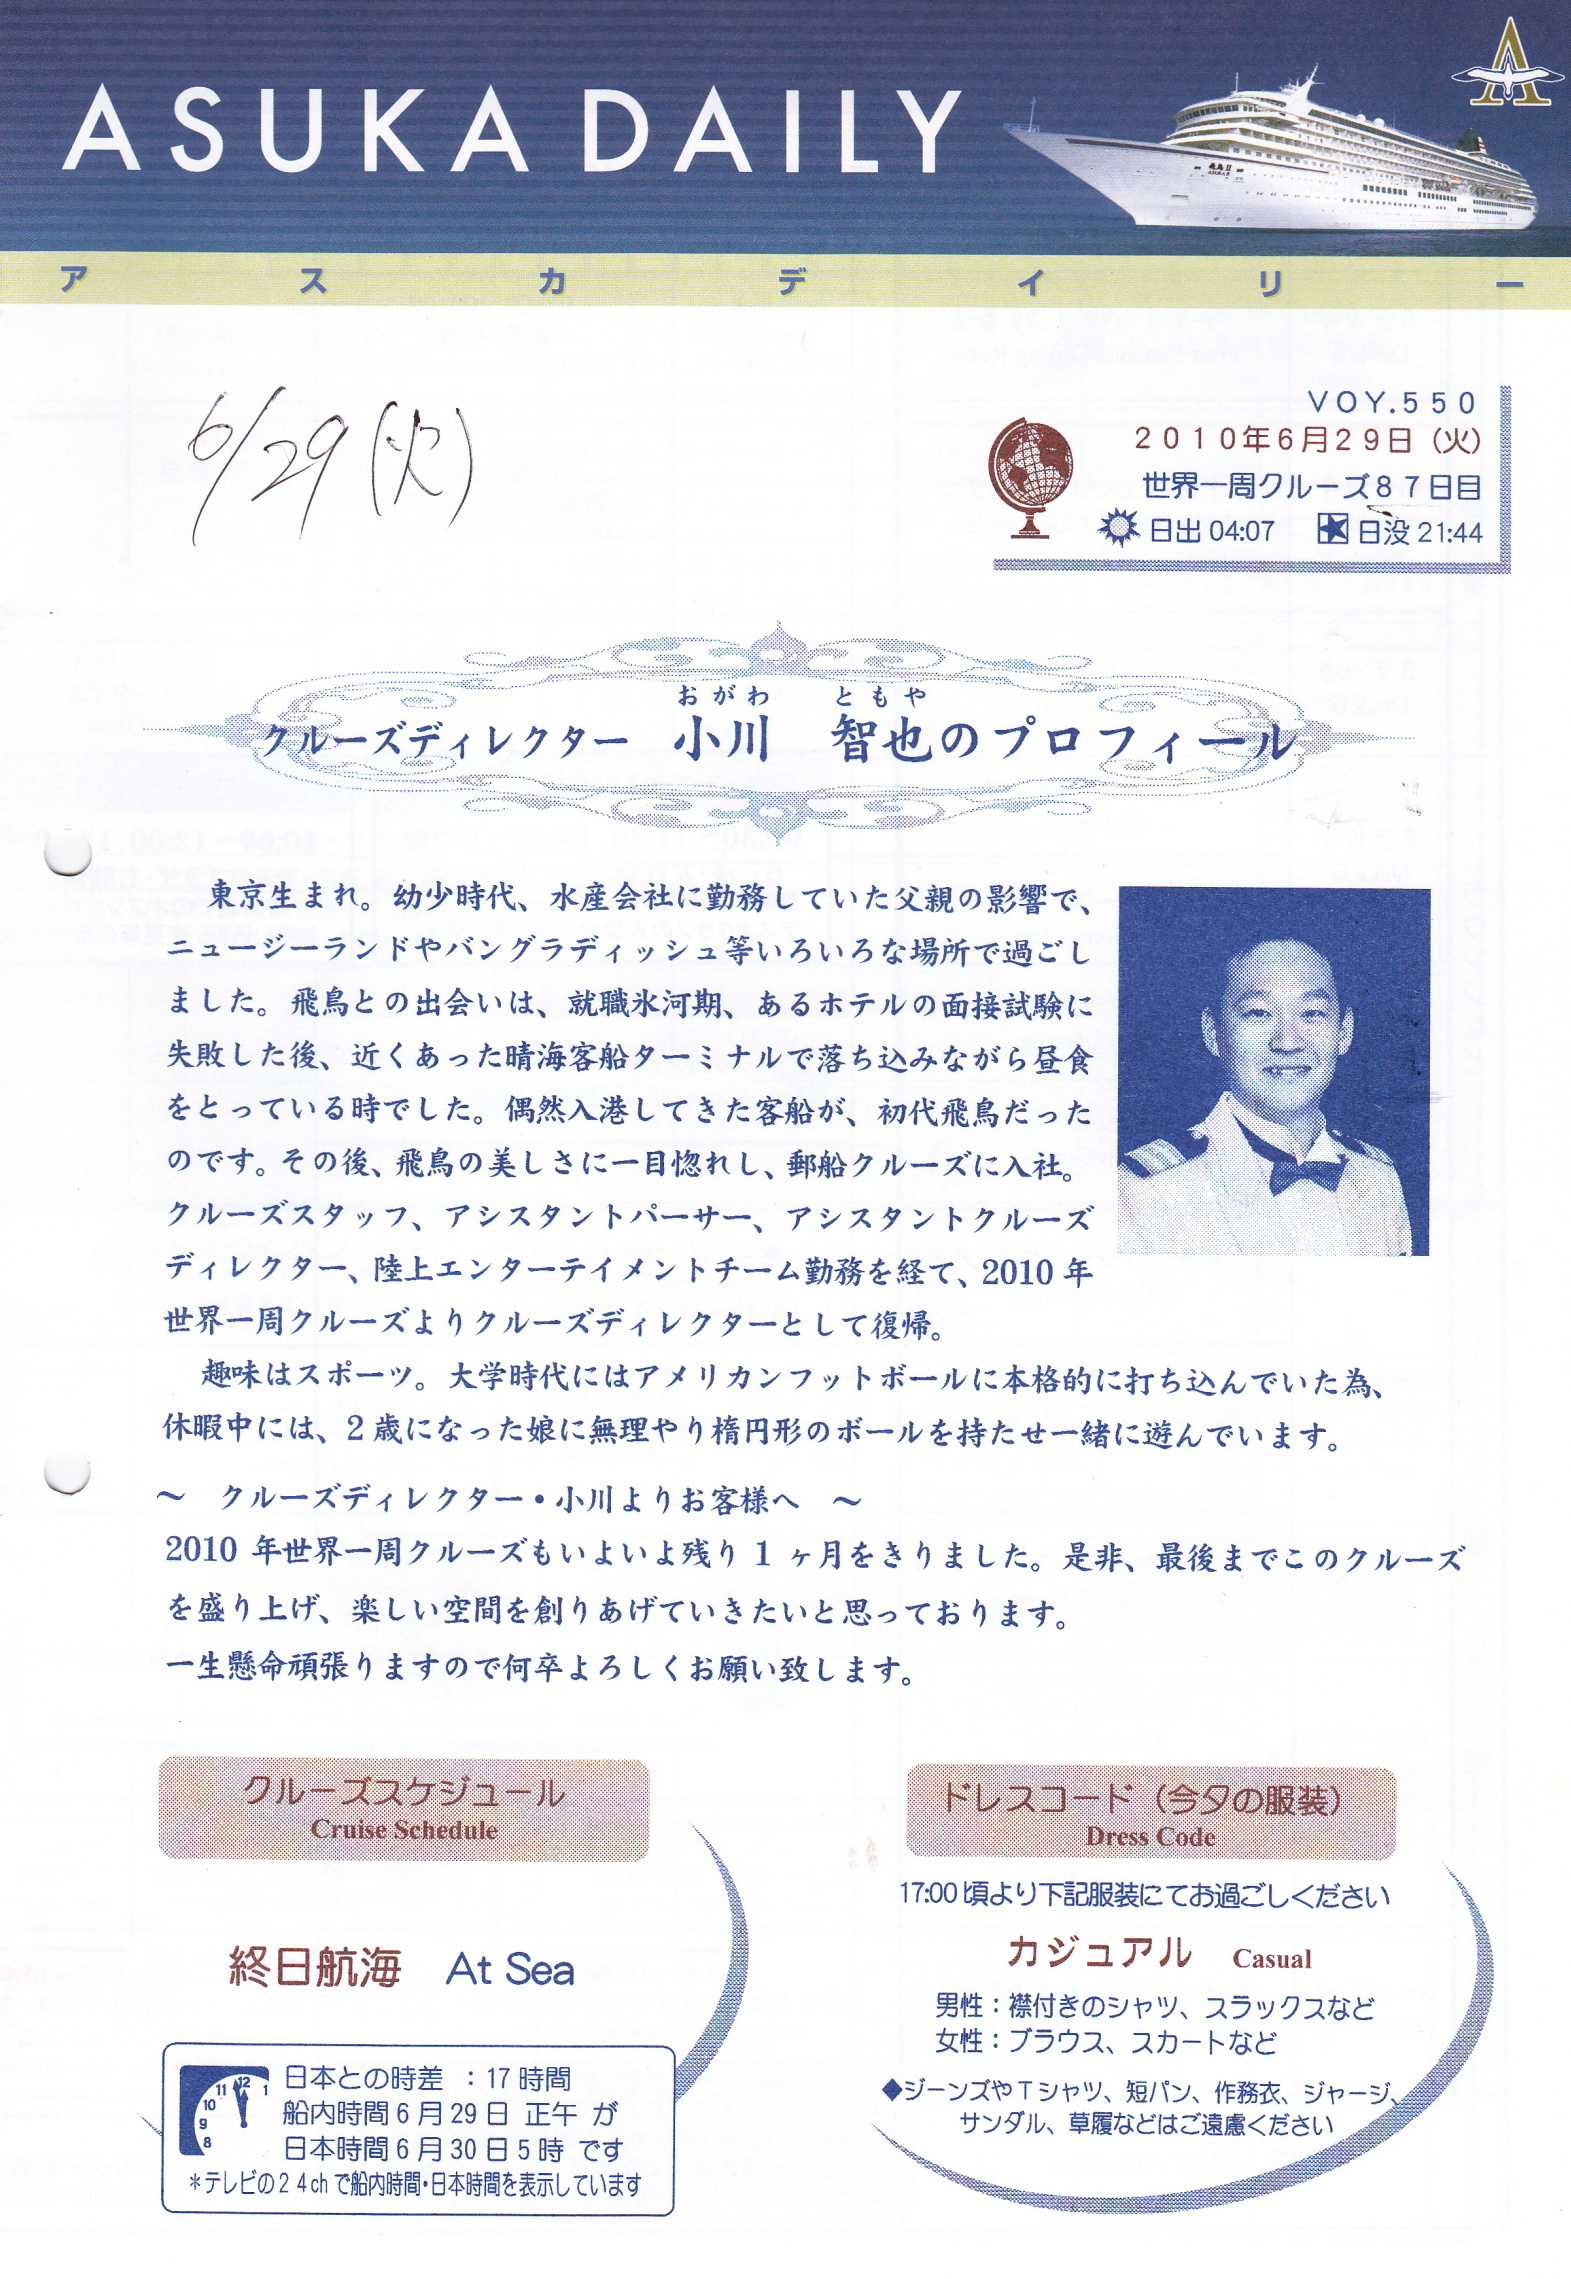 ASUKA DAILY
飛鳥Ⅱ
ASUKA Ⅱ
アスカデイリー
6/29(火)
VOY.550
2010年6月29日（火）
世界一周クルーズ87日目
日出 04:07 日没 21:44
おがわ ともや
クルーズディレクター 小川 智也のプロフィール
東京生まれ。幼少時代、水産会社に勤務していた父親の影響で、
ニュージーランドやバングラディッシュ等いろいろな場所で過ごし
ました。飛鳥との出会いは、就職氷河期、あるホテルの面接試験に
失敗した後、近くあった晴海客船ターミナルで落ち込みながら昼食
をとっている時でした。偶然入港してきた客船が、初代飛鳥だった
のです。その後、飛鳥の美しさに一目惚れし、郵船クルーズに入社。
クルーズスタッフ、アシスタントパーサー、アシスタントクルーズ
ディレクター、陸上エンターテイメントチーム勤務を経て、2010 年
世界一周クルーズよりクルーズディレクターとして復帰。
趣味はスポーツ。大学時代にはアメリカンフットボールに本格的に打ち込んでいた為、
休暇中には、2 歳になった娘に無理やり楕円形のボールを持たせ一緒に遊んでいます。
～ クルーズディレクター・小川よりお客様へ ～
2010 年世界一周クルーズもいよいよ残り 1 ヶ月をきりました。是非、最後までこのクルーズ
を盛り上げ、楽しい空間を創りあげていきたいと思っております。
一生懸命頑張りますので何卒よろしくお願い致します。
クルーズスケジュール
Cruise Schedule
終日航海 At Sea
日本との時差 ：17 時間
船内時間 6 月 29 日 正午 が
日本時間 6 月 30 日 5 時 です
＊テレビの２４ch で船内時間・日本時間を表示しています
12 1
11
10
9
8
ドレスコード（今夕の服装）
Dress Code
17:00 頃より下記服装にてお過ごしください
カジュアル Casual
男性：襟付きのシャツ、スラックスなど
女性：ブラウス、スカートなど
◆ジーンズやＴシャツ、短パン、作務衣、ジャージ、
サンダル、草履などはご遠慮ください